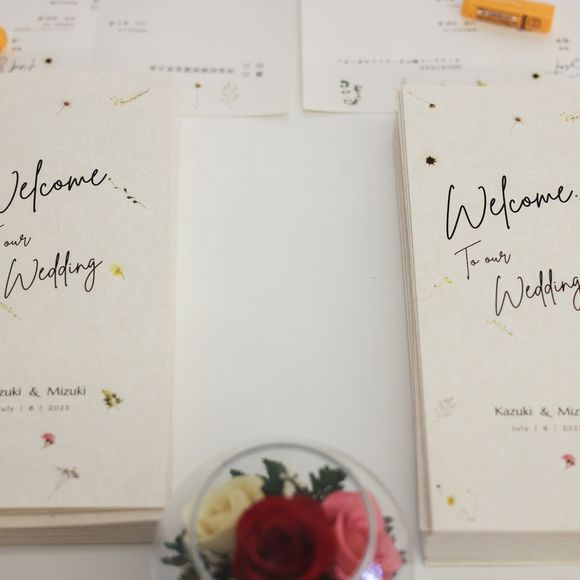 Welcome
To our
Wedding
zuki & Mizuki
uly | 8 | 2023
Welcome
To our
Wedding
Kazuki & Miz
July | 8 | 202